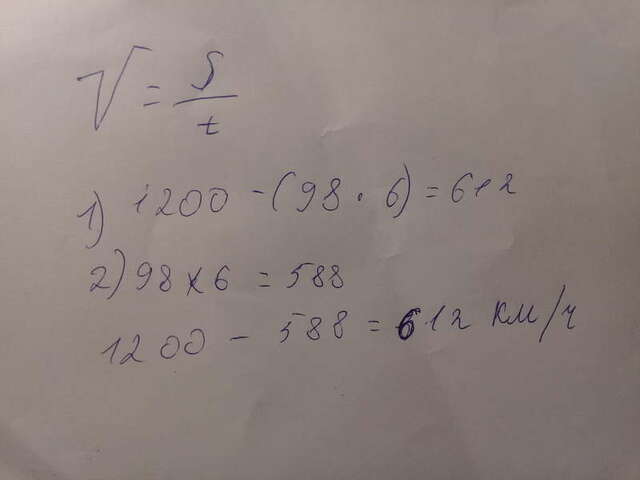 V = S/t
1) 1200 - (98 · 6) = 612
2) 98 x 6 = 588
1200 - 588 = 612 км/ч